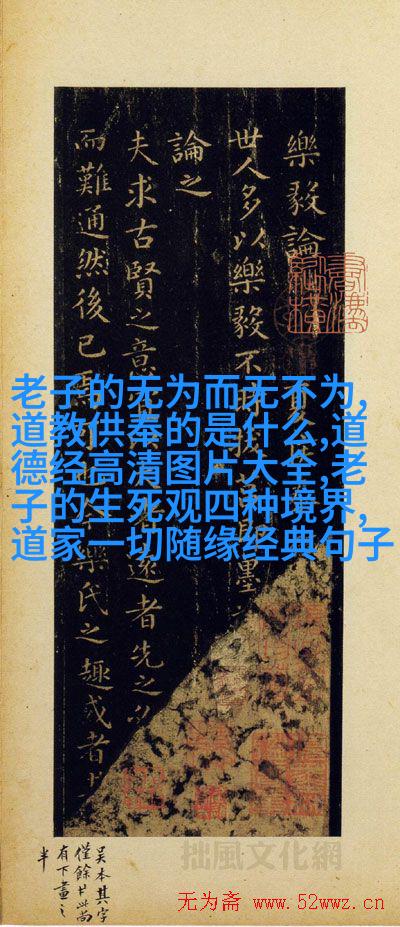 樂毅論
世人多以樂毅不
論之
夫求古賢之意 遠者先之
而難通然後已 樂氏之趣或者
老子的无为而无不为,
道教供奉的是什么,道
德经高清图片大全,老
子的生死观四种境界,
道家一切随缘经典句子
吳本其字
僅餘 此尚
有下畫之
半
拙風文化網
无为斋 www.52wwz.cn